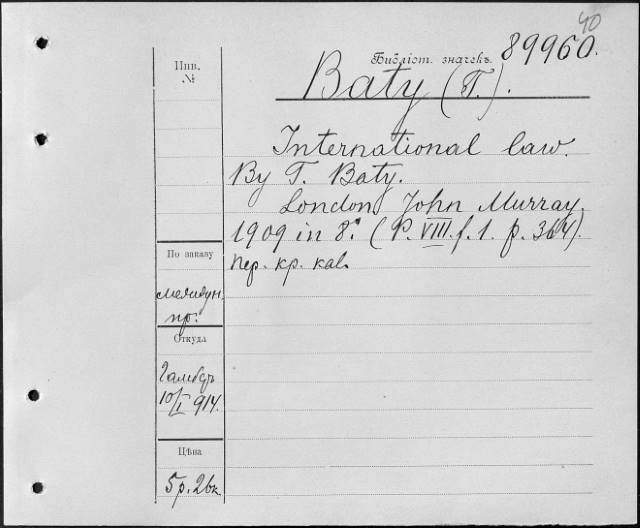 40
Библіот. значекъ 89960.
Baty (T.).
Инв.
№
International law.
By T. Baty.
London, John Murray.
1909 in 8°. (P. VIII. f. 1. p. 364).
пер. кр. кал.
По заказу
междун.
пр.
Откуда
10/I 914.
Цѣна
5 р. 26 к.